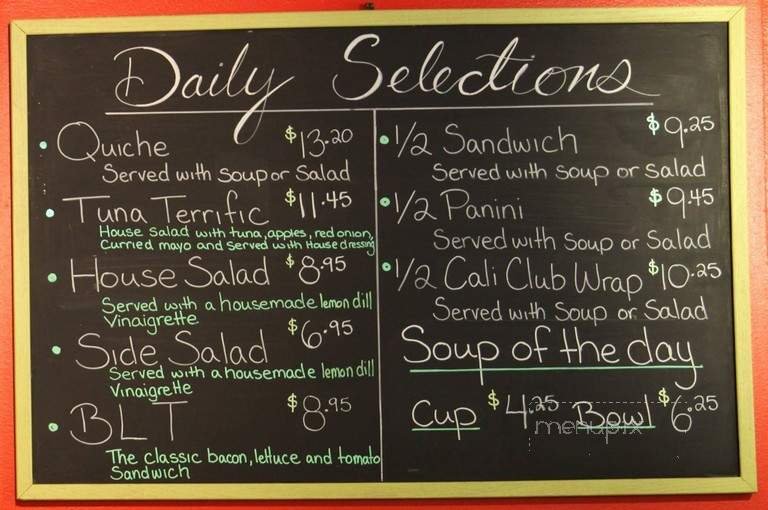 Daily Selections
Quiche $13.20
Served with soup or salad
Tuna Terrific $11.45
House Salad with tuna, apples, red onion,
Curried mayo and served with House dressing
House Salad $8.95
Served with a housemade lemon dill
Vinaigrette
Side Salad $6.95
Served with a housemade lemon dill
Vinaigrette
BLT $8.95
The classic bacon, lettuce and tomato
Sandwich
1/2 Sandwich $9.25
Served with soup or salad
1/2 Panini $9.45
Served with Soup or Salad
1/2 Cali Club Wrap $10.25
Served with Soup or Salad
Soup of the day
Cup $4.25 Bowl $6.25
menupix